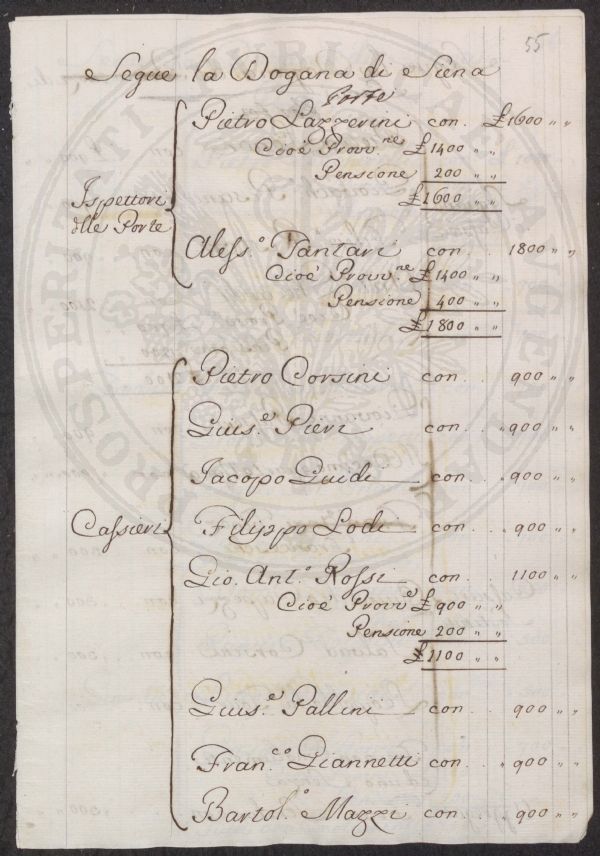 55
Segue la Dogana di Siena
Porte
Pietro Lazzerini con. £1600 " "
Cioè Provv.ne £1400 " "
Pensione 200 " "
£1600 " "
Ispettori
alle Porte
Aless.o Tantari con 1800 " "
Cioè Provv.ne £1400 " "
Pensione 400 " "
£1800 " "
Pietro Corsini con. . 900 " "
Gius.e Pieri con. . " 900 " "
Jacopo Guidi con. . " 900 " "
Cassieri Filippo Lodi con. . " 900 " "
Gio. Ant.o Rossi con. 1100 " "
Cioè Provv.e £ 900 " "
Pensione 200 " "
£1100 " "
Gius.e Pallini con. . 900 " "
Fran.co Giannetti con. . " 900 " "
Bartol.o Mazzi con. . " 900 " "